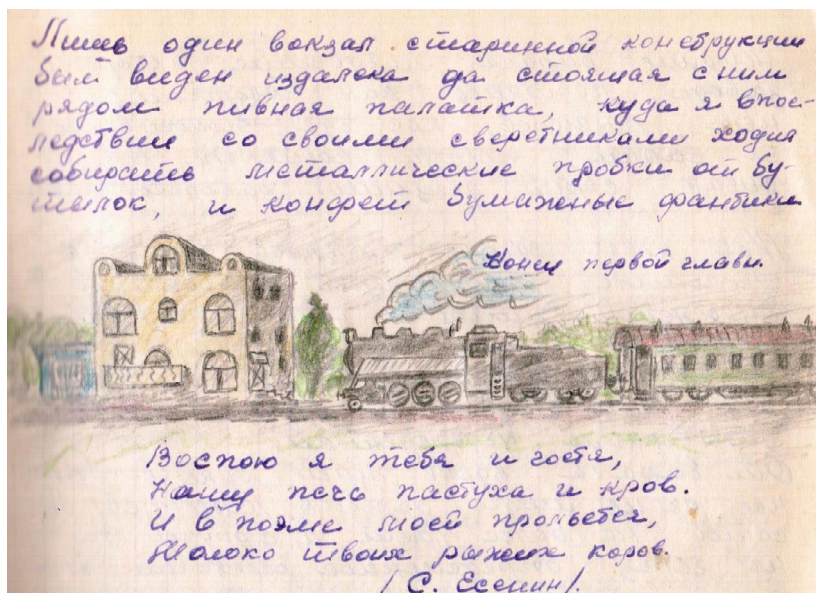 Лишь один вокзал старинной конструкции
был виден издалека да стоящая с ним
рядом пивная палатка, куда я впос-
ледствии со своими сверстниками ходил
собирать металлические пробки от бу-
тылок, и конфет бумажные фантики
Конец первой главы.
Воспою я тебя и гостя,
Нашу печь пастуха и кров.
И в поэме моей прольется,
Молоко твоих рыжих коров.
/ С. Есенин/.